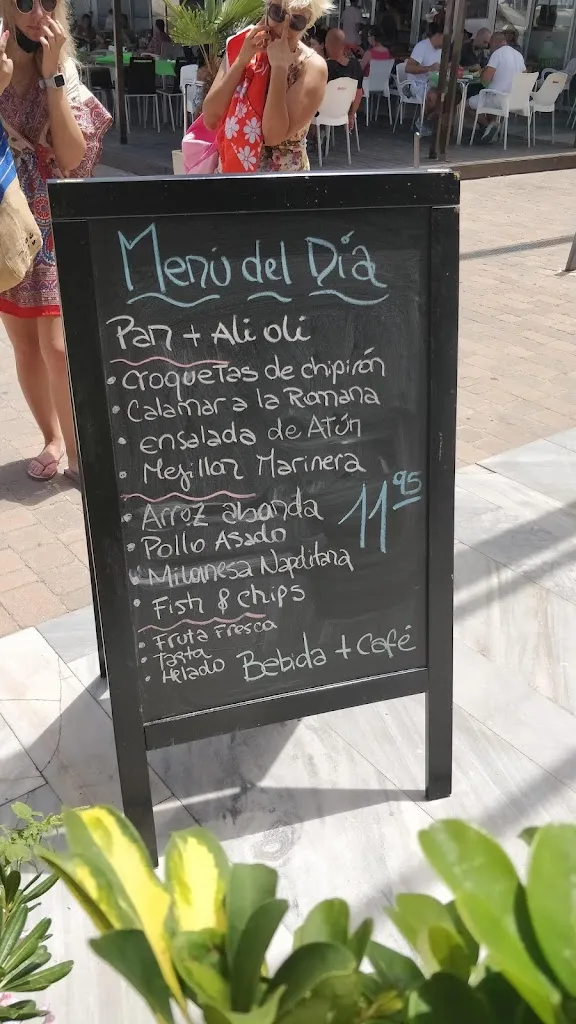 Menú del Día
Pan + Ali oli
• croquetas de chipirón
• Calamar a la Romana
• ensalada de Atún
• Mejillon Marinera
• Arroz abanda
11 95
• Pollo Asado
• Milanesa Napolitana
• Fish & chips
• Fruta Fresca
• Tarta
• Helado
Bebida + Café